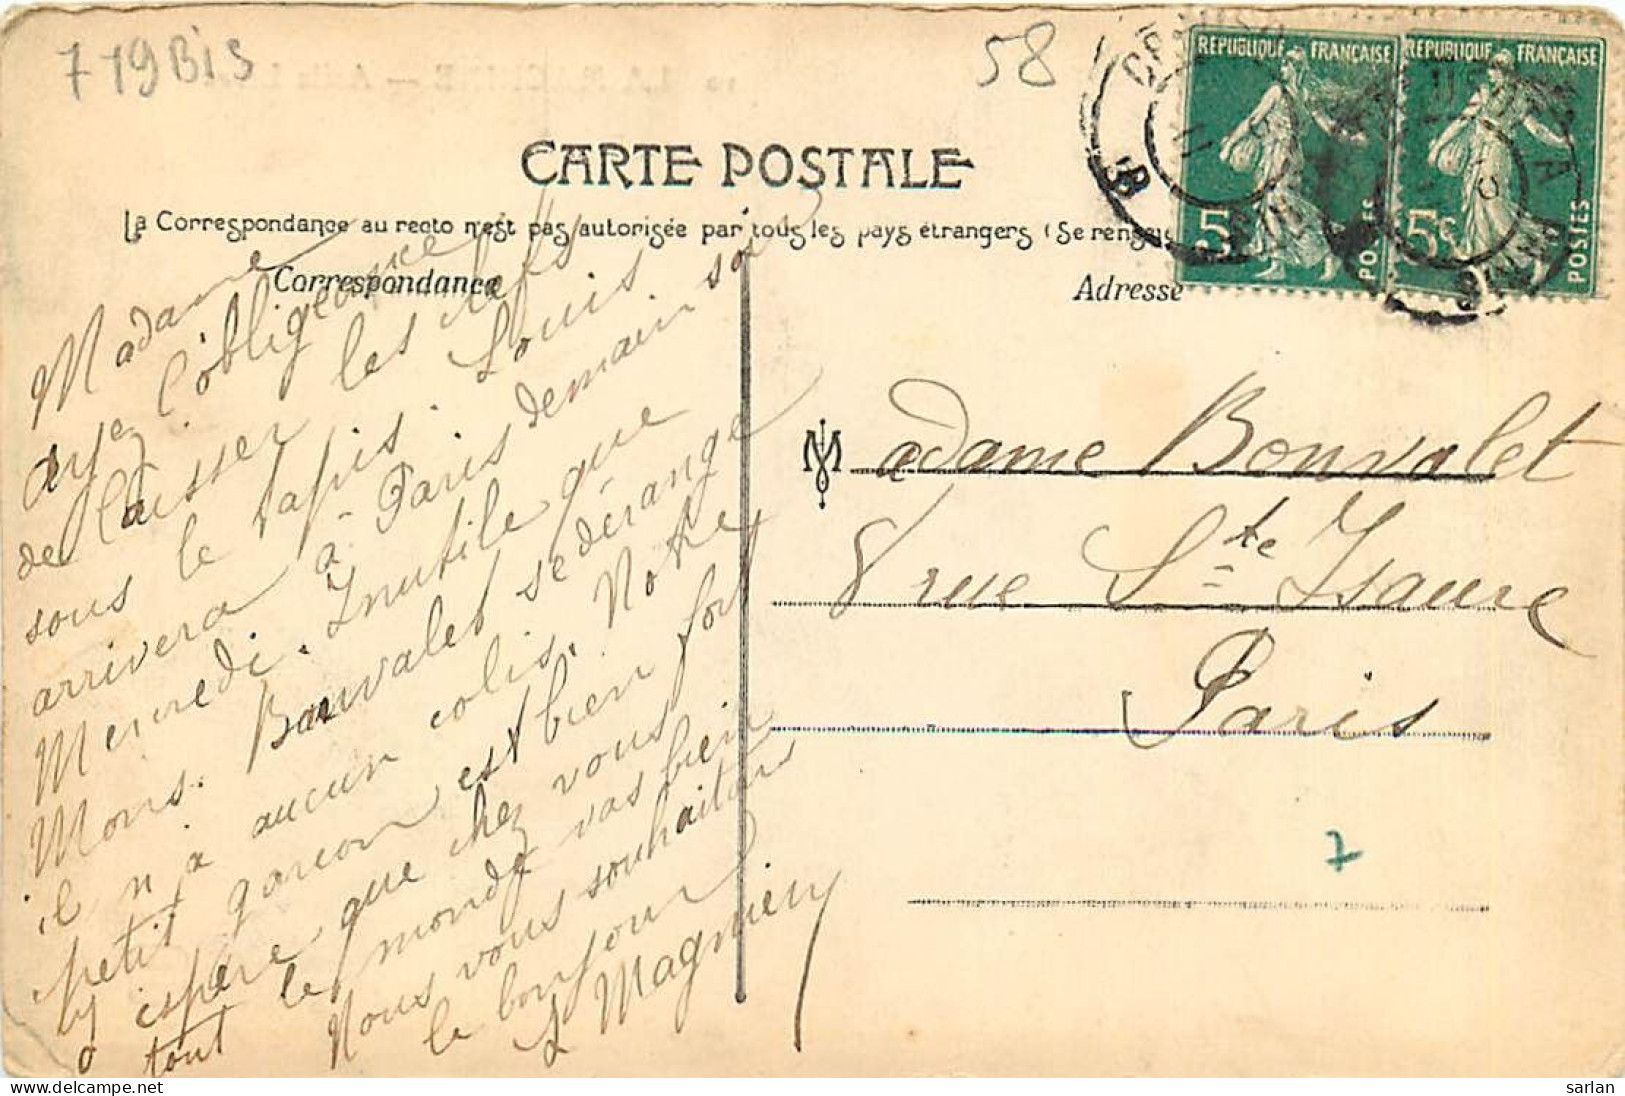 719 Bis
58
CARTE POSTALE
La Correspondance au recto n'est pas autorisée par tous les pays étrangers (Se renseig
Correspondance
Adresse
REPUBLIQUE FRANÇAISE
5
POSTES
REPUBLIQUE FRANÇAISE
5c
POSTES
Madame
ayez l'obligeance
de laisser les clefs
sous le tapis. Louis
arrivera à Paris demain soir
Mercredi. Inutile que
Mons. Bonvalet se dérange
il n a aucun colis. Notre
petit garcon est bien fort
j espère que chez vous
tout le monde vas bien
Nous vous souhaitons
le bonjour
L Magnien
Madame Bonvalet
8 rue Ste Isaure
Paris
7
sarlan